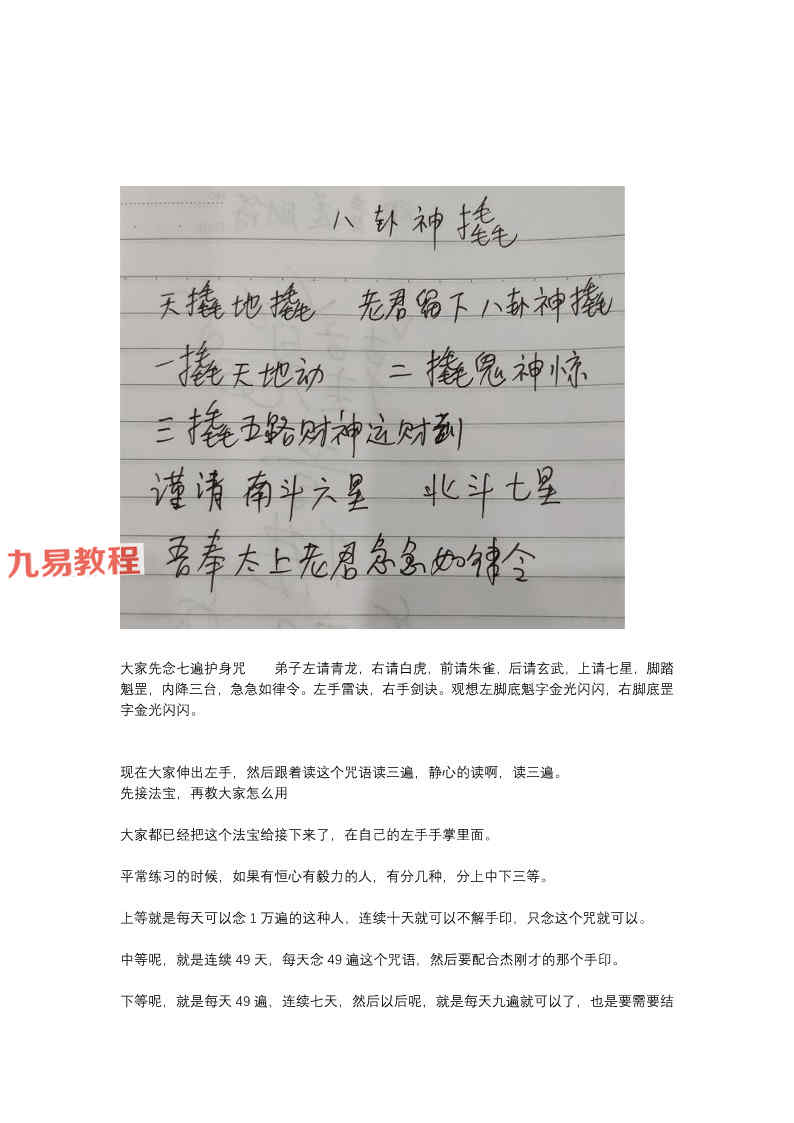 八卦神撬
天撬地撬 老君留下八卦神撬
一撬天地动 二撬鬼神惊
三撬五路财神运财到
谨清南斗六星 北斗七星
吾奉太上老君急急如律令
九易教程
大家先念七遍护身咒 弟子左请青龙，右请白虎，前请朱雀，后请玄武，上请七星，脚踏
魁罡，内降三台，急急如律令。左手雷诀，右手剑诀。观想左脚底魁字金光闪闪，右脚底罡
字金光闪闪。
现在大家伸出左手，然后跟着读这个咒语读三遍，静心的读啊，读三遍。
先接法宝，再教大家怎么用
大家都已经把这个法宝给接下来了，在自己的左手手掌里面。
平常练习的时候，如果有恒心有毅力的人，有分几种，分上中下三等。
上等就是每天可以念 1 万遍的这种人，连续十天就可以不解手印，只念这个咒就可以。
中等呢，就是连续 49 天，每天念 49 遍这个咒语，然后要配合杰刚才的那个手印。
下等呢，就是每天 49 遍，连续七天，然后以后呢，就是每天九遍就可以了，也是要需要结